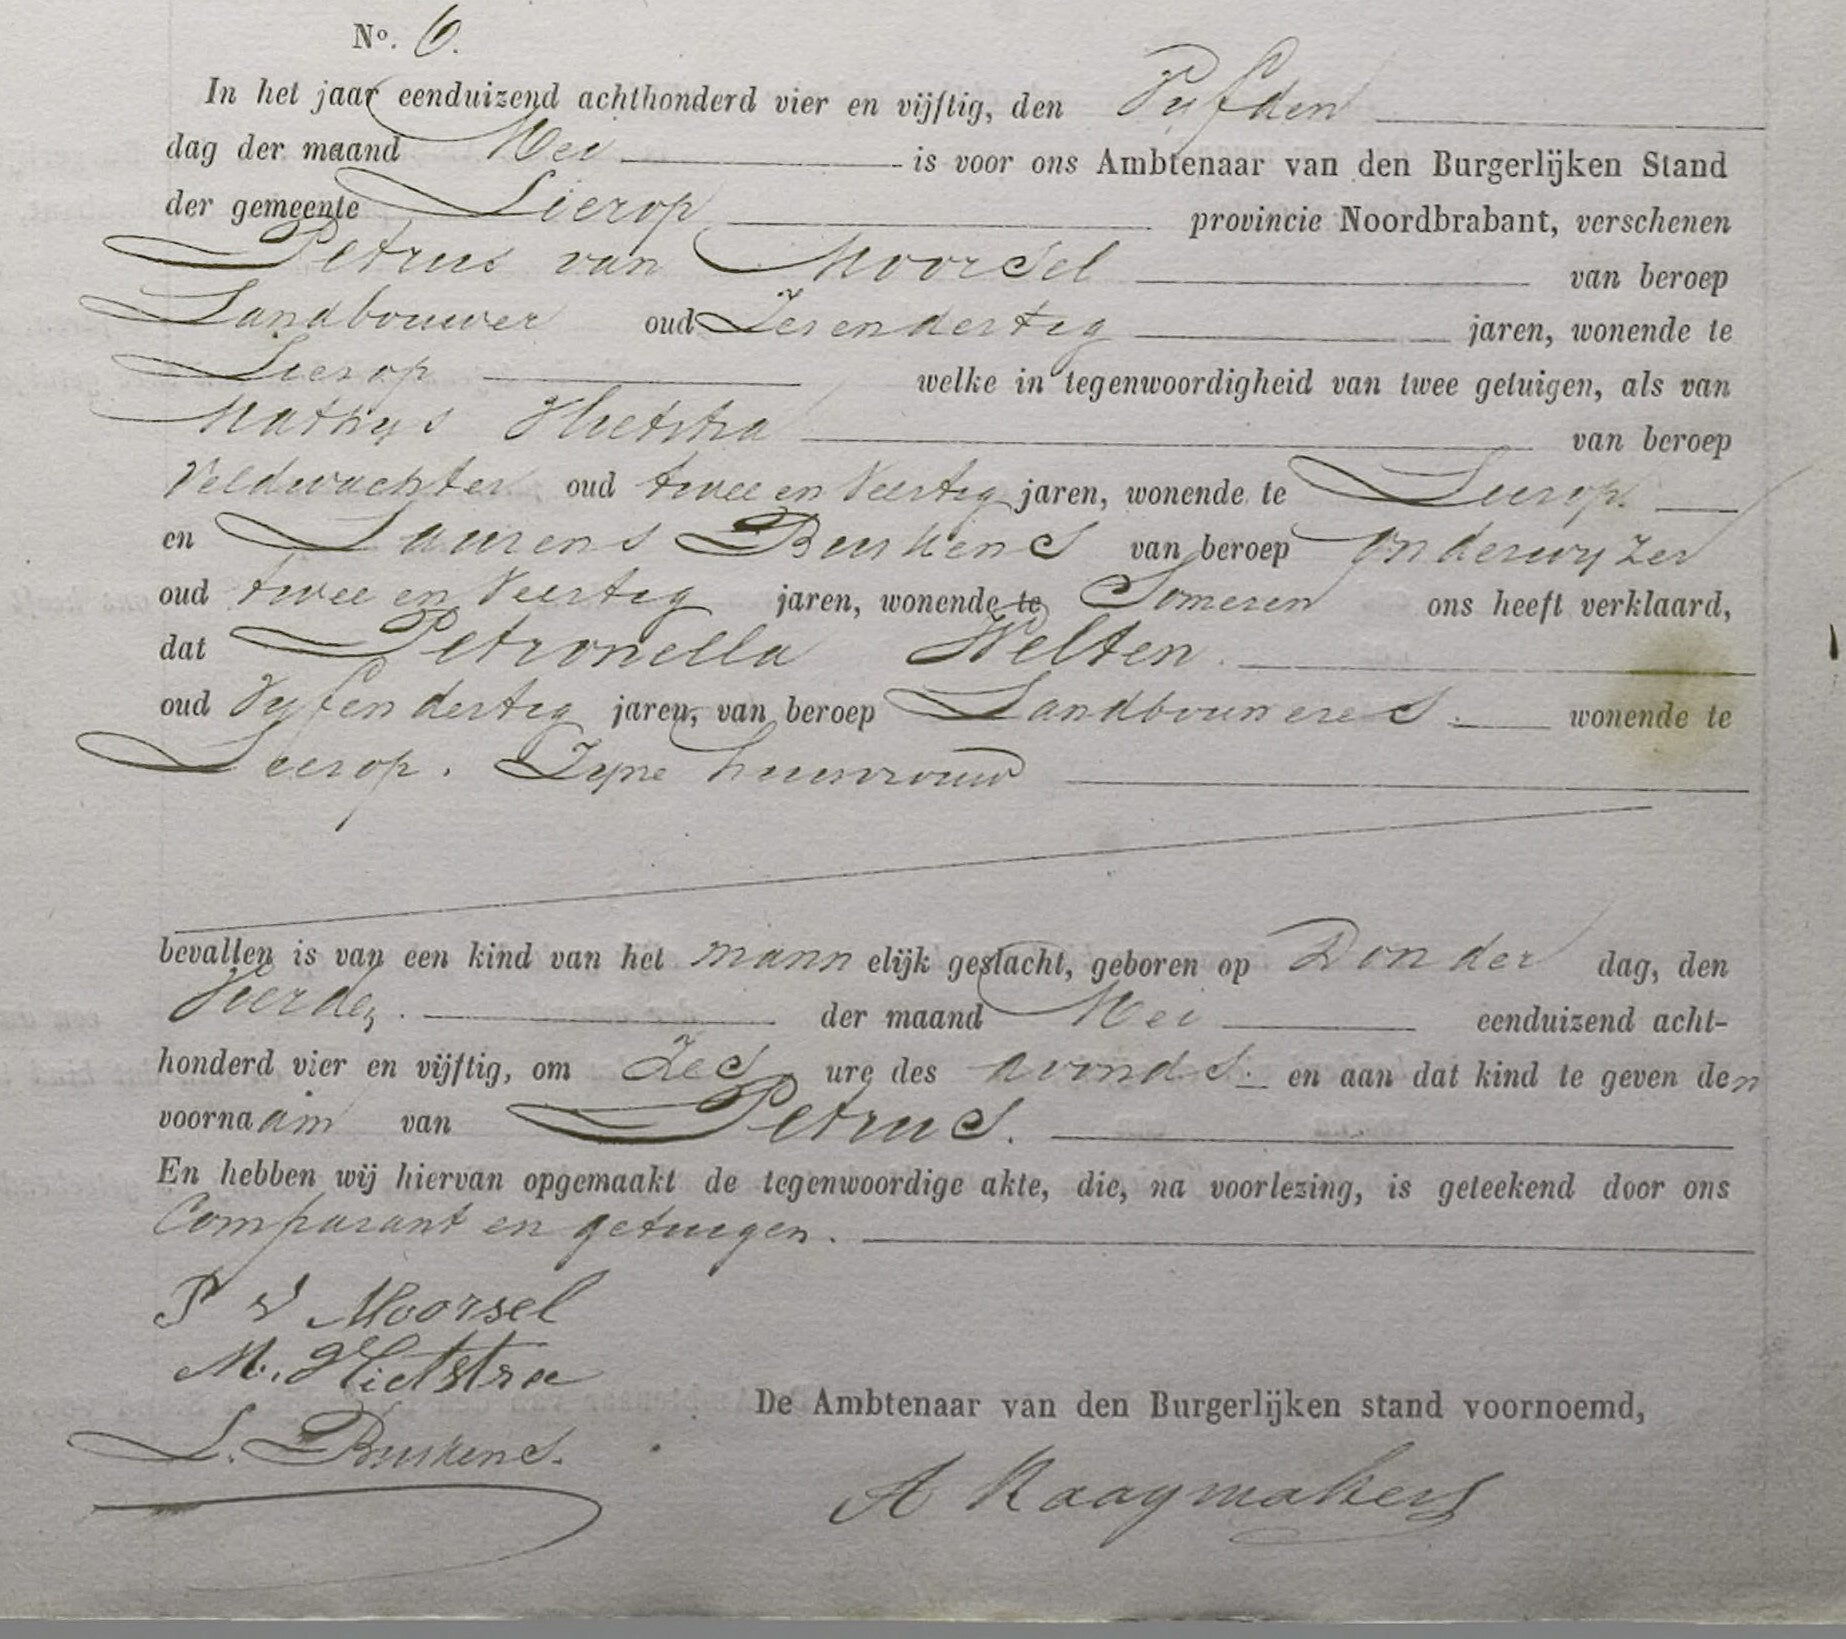 No. 6.
In het jaar eenduizend achthonderd vier en vijftig, den Vyfden
dag der maand Mei is voor ons Ambtenaar van den Burgerlijken Stand
der gemeente Lierop provincie Noordbrabant, verschenen
Petrus van Moorsel van beroep
Landbouwer oud Zesendertig jaren, wonende te
Lierop welke in tegenwoordigheid van twee getuigen, als van
Mathys Hietstra van beroep
Veldwachter oud twee en Veertig jaren, wonende te Lierop.
en Laurens Buskens van beroep Onderwyzer
oud twee en Veertig jaren, wonende te Someren ons heeft verklaard,
dat Petronella Welten.
oud Vyfendertig jaren, van beroep Landbouweres. wonende te
Lierop. Zyne huisvrouw
bevallen is van een kind van het mannelijk geslacht, geboren op Donderdag, den
Vierden. der maand Mei eenduizend acht-
honderd vier en vijftig, om Zes ure des avonds. en aan dat kind te geven den
voornaam van Petrus.
En hebben wij hiervan opgemaakt de tegenwoordige akte, die, na voorlezing, is geteekend door ons
Comparant en getuigen.
P V Moorsel
M. Hietstra
De Ambtenaar van den Burgerlijken stand voornoemd,
L. Buskens.
A Raaymakers